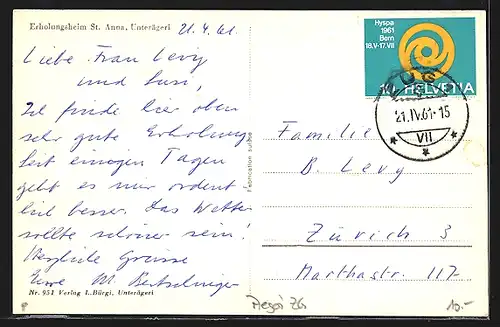 Erholungsheim St. Anna, Unterägeri
21.4.61.
Liebe Frau Levy
und Susi,
Ich finde hier oben
sehr gute Erholung
seit einigen Tagen
geht es mir ordent
lich besser. Das Wetter
sollte schöner sein!
Herzliche Grüsse
Eure M. Bertschinger
Nr. 951 Verlag L. Bürgi, Unterägeri
Fabrication Suisse
Hyspa
1961
Bern
18.V-17.VII
10 HELVETIA
ZUG
21.IV.61-15
VII
Familie
B. Levy
Zürich 3
Marthastr. 117
10.-